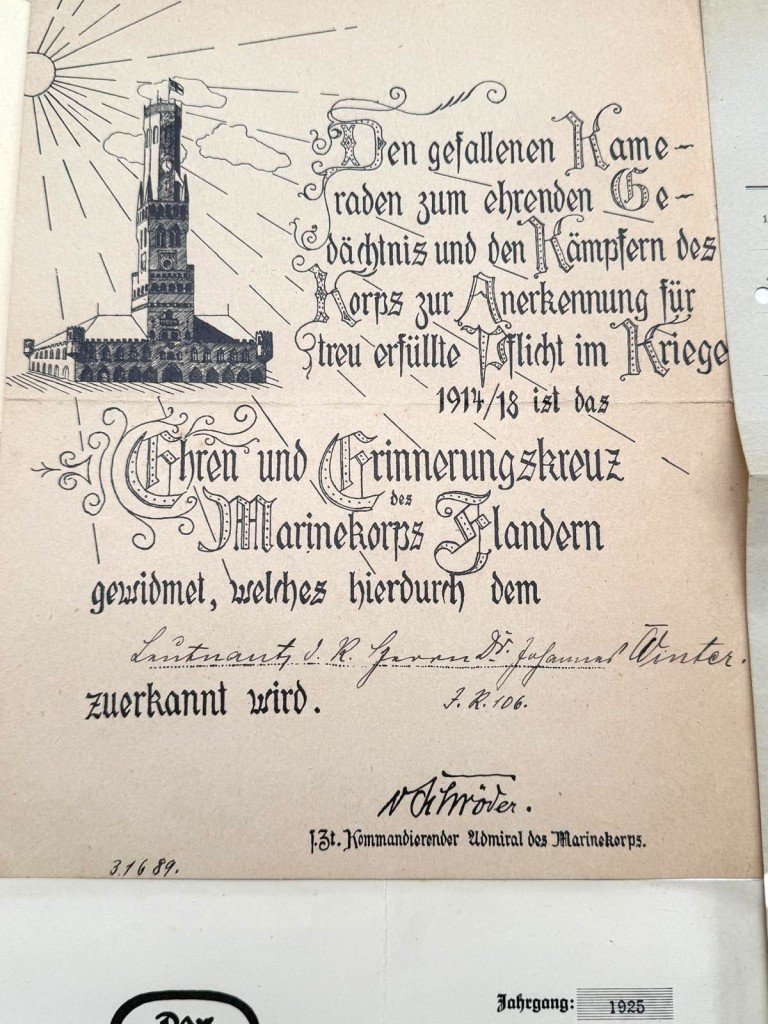 Den gefallenen Kame-
raden zum ehrenden Ge-
dächtnis und den Kämpfern des
Korps zur Anerkennung für
treu erfüllte Pflicht im Kriege
1914/18 ist das
Ehren und Erinnerungskreuz
des
Marinekorps Flandern
gewidmet, welches hierdurch dem
Leutnant d. R. Herrn Dr. Johannes Winter.
zuerkannt wird.
J. R. 106.
v Schröder.
s. Zt. Kommandierender Admiral des Marinekorps.
31689.
Jahrgang: 1925
Der